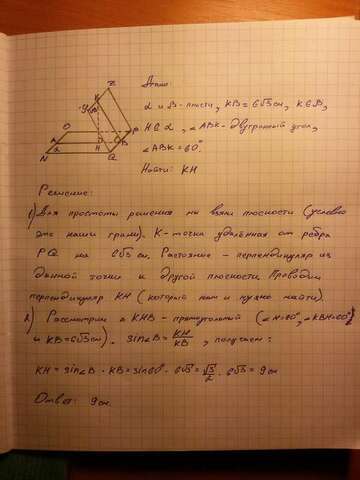 Z
K
O
P
A
D
C
B
α
H
N
Q
Дано:
α и β - плости, KB = 6√3 см, K∈β,
H∈α, ∠ABK - двугранный угол,
∠ABK = 60°
Найти: KH
Решение:
1) Для простоты решения мы взяли плоскости (условно
это наши грани). K - точка удалённая от ребра
PQ на 6√3 см. Растояние - перпендикуляр из
данной точки к другой плоскости. Проводим
перпендикуляр KH (который нам и нужно найти).
2) Рассмотрим Δ KHB - прямоугольный (∠H=90°, ∠KBH=60°
и KB=6√3 см). sin∠B = KH/KB, получаем:
KH = sin∠B · KB = sin60° · 6√3 = √3/2 · 6√3 = 9 см
Ответ: 9 см.